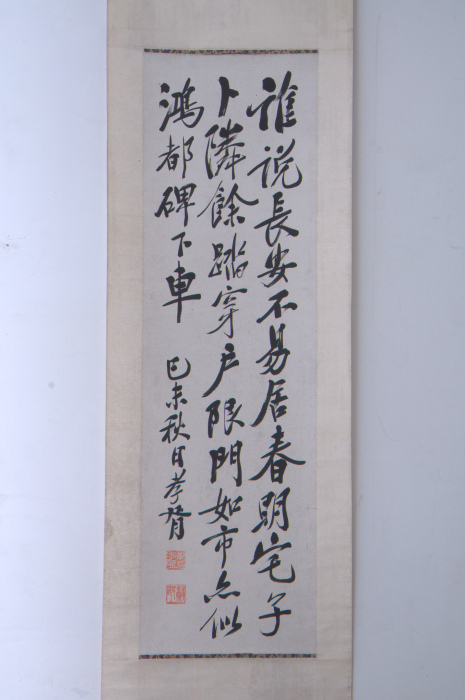 誰說長安不易居春明宅子
卜隣餘踏穿户限門如市亦似
鴻都碑下車
己未秋日孝胥